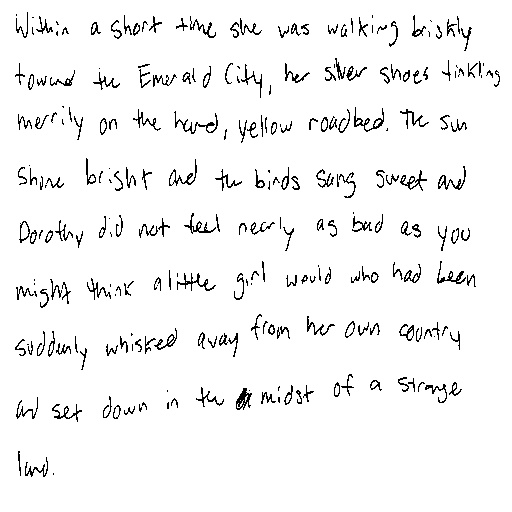 Within a short time she was walking briskly
toward the Emerald City, her silver shoes tinkling
merrily on the hard, yellow roadbed. The sun
shone bright and the birds sang sweet and
Dorothy did not feel nearly as bad as you
might think a little girl would who had been
suddenly whisked away from her own country
and set down in the midst of a strange
land.